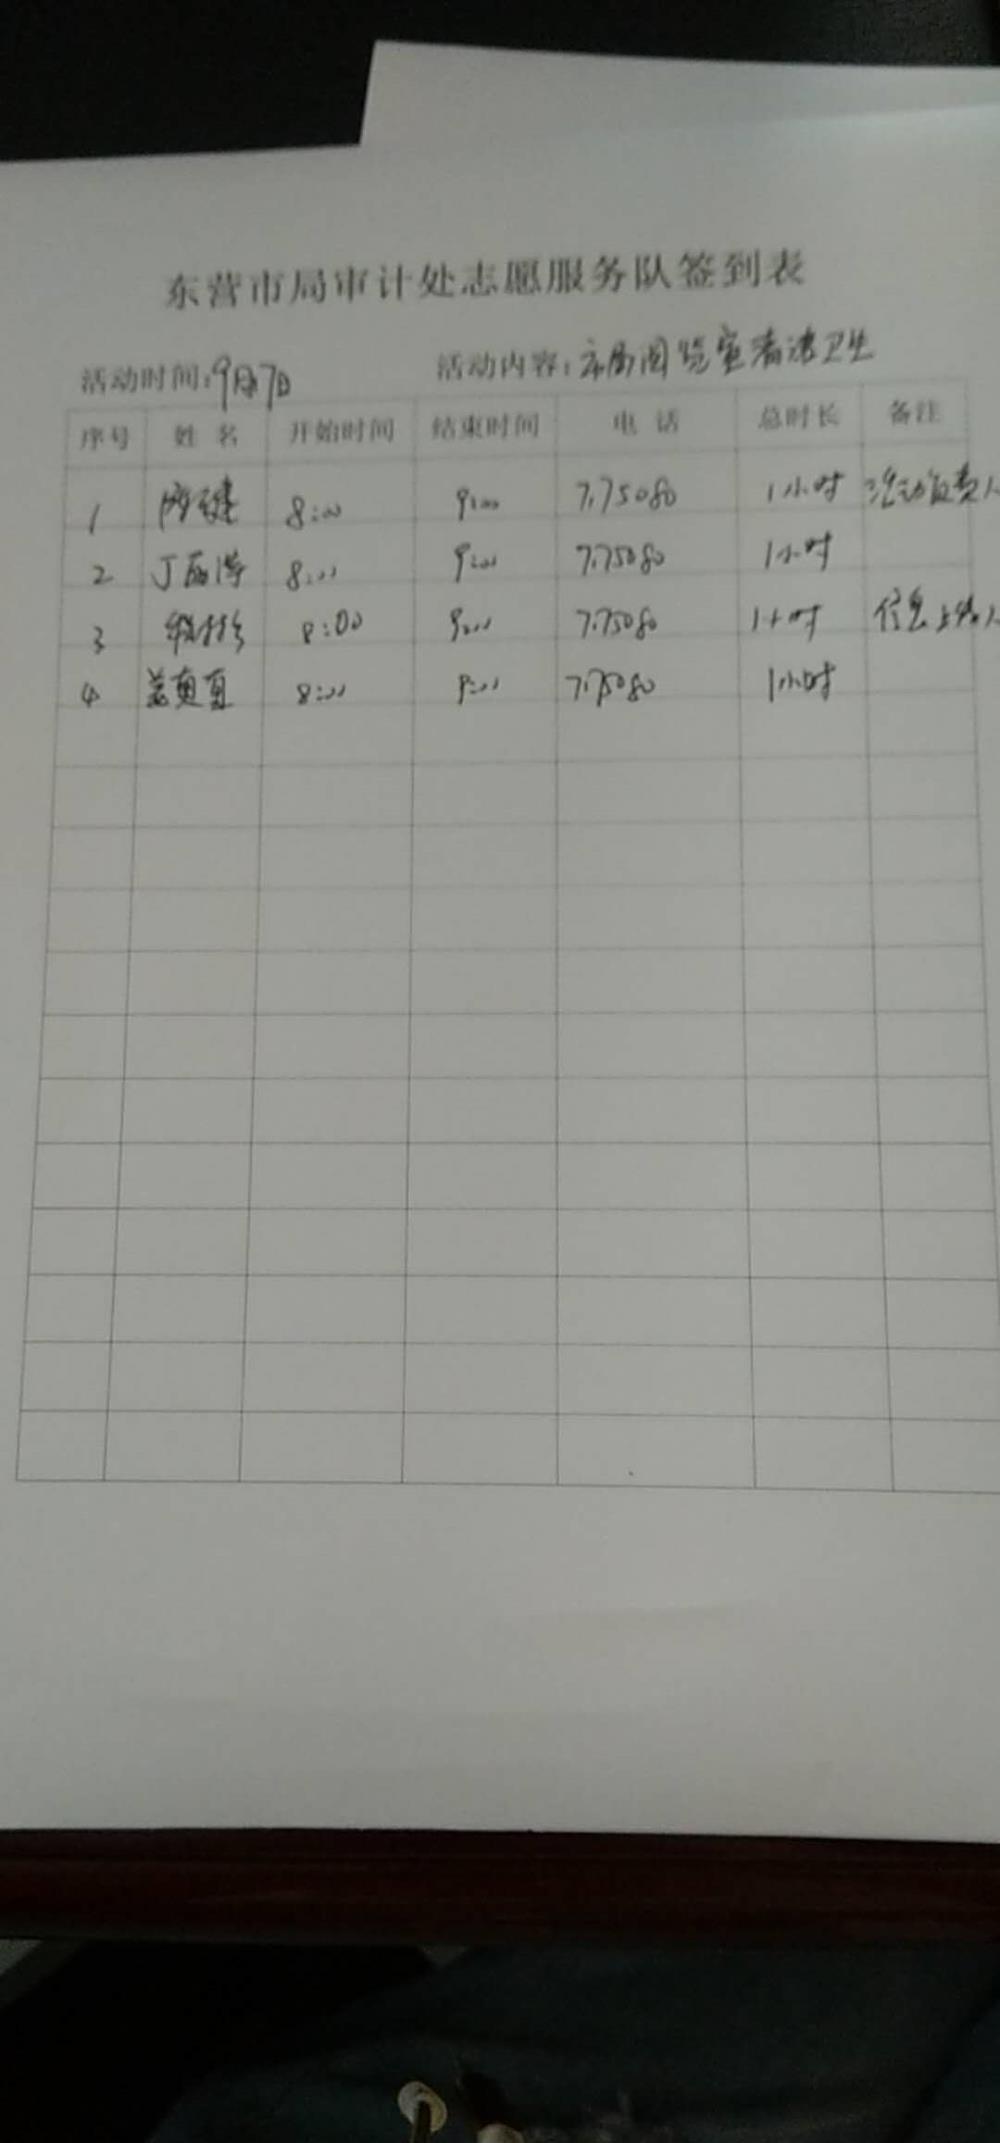 东营市局审计处志愿服务队签到表
活动时间:9月7日 活动内容:市局阅览室清洁卫生
序号 姓名 开始时间 结束时间 电话 总时长 备注
1 8:00 9:00 7775080 1小时 活动负责人
2 丁 8:00 9:00 7775080 1小时
3 8:00 9:00 7775080 1小时 信息上传人
4 8:00 9:00 7775080 1小时